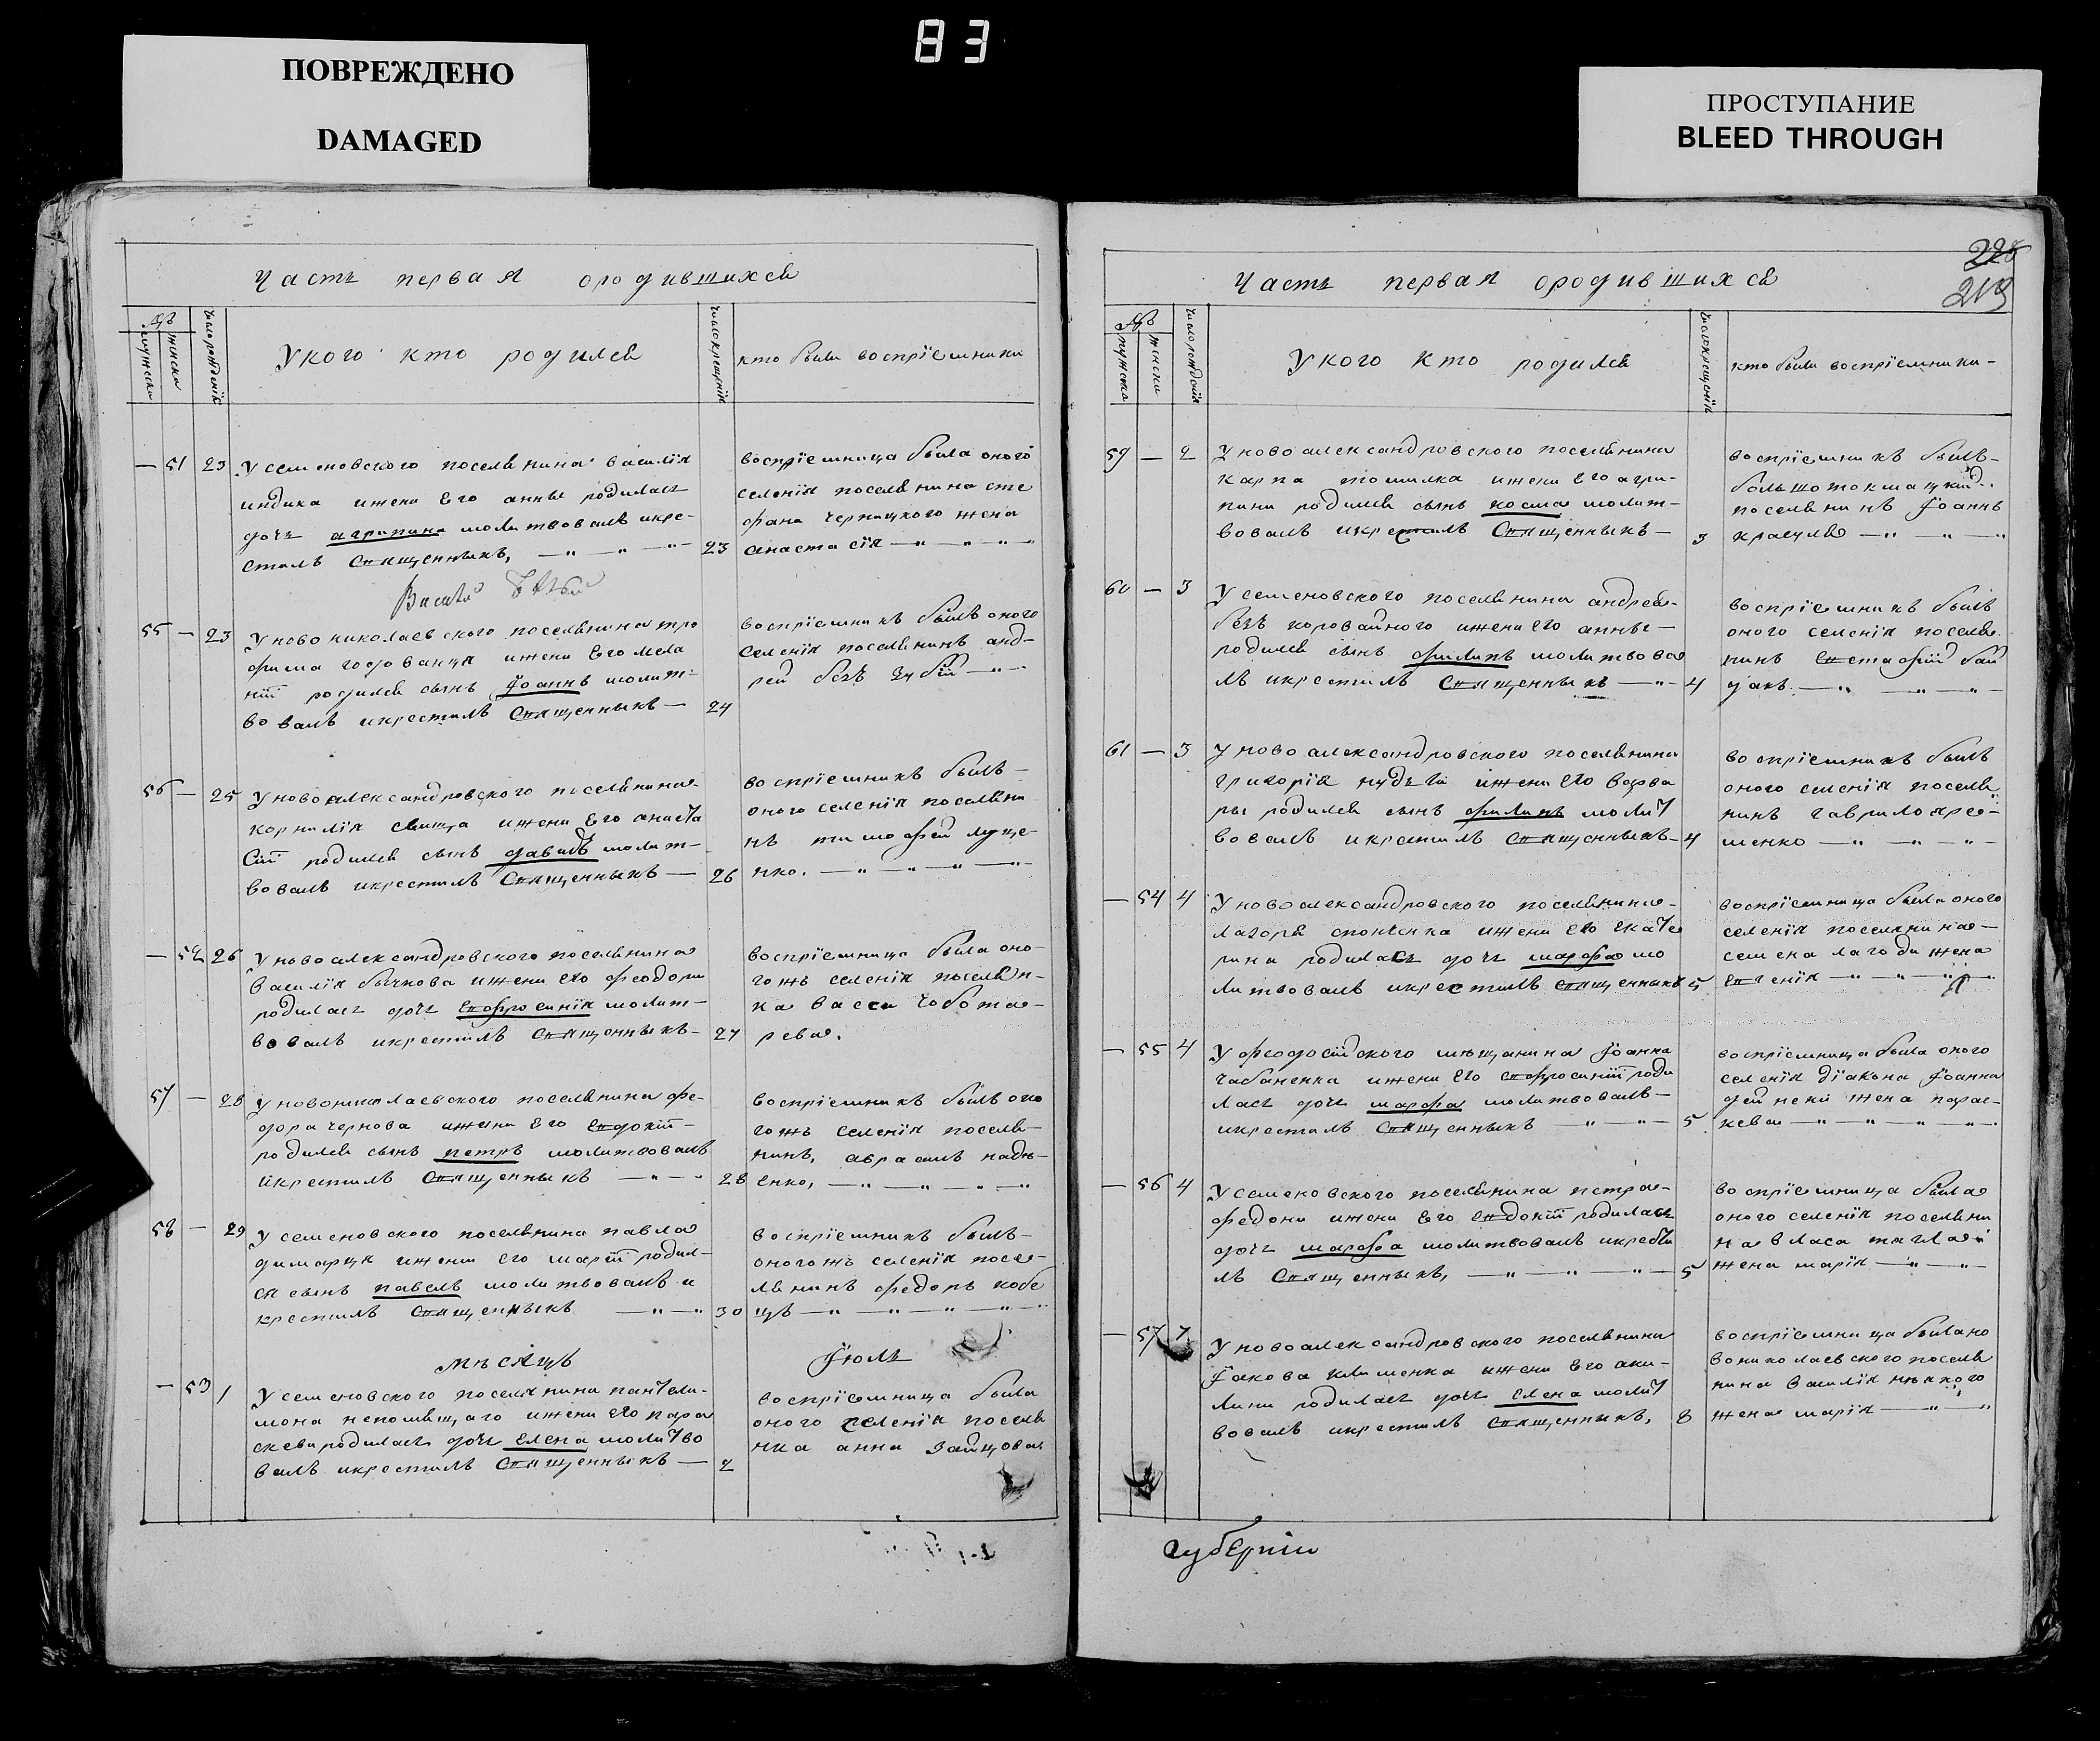 83
ПОВРЕЖДЕНО
DAMAGED
ПРОСТУПАНИЕ
BLEED THROUGH
Часть первая ородившихся
№
мужеска
женска
число рожденія
Укого кто родился
число крещенія
кто были воспріемники
— 51 23 У семеновского поселянина василія
индика и жени его анны родилась
дочь агрипина молитвовалъ икре-
стилъ Священникъ, — „ — „ — „ 23
воспріемница была оного
селенія поселянина сте
фана черницкого жена
анастасія — „ — „ — „ — „
55 — 23 У ново николаевского поселянина тро
фима годованця и жени его мела
ніи родился сынъ Іоаннъ молит-
вовалъ и крестилъ Священникъ — 24
воспріемникъ былъ оного
селенія поселянинъ анд-
рей безъ зубій — „ —
56 — 25 У новоалександровского поселянина
корнилія свища и жени его анаста
сіи родился сынъ давидъ молит-
вовалъ и крестилъ Священникъ — 26
воспріемникъ былъ —
оного селенія поселяни
нъ тимофей луце-
нко. — „ — „ — „
— 52 26 У новоалександровского поселянина
василія бычкова и жени его феодори
родилась дочь Евфросинія молит-
вовалъ и крестилъ Священникъ — 27
воспріемница была оно-
гожъ селенія поселян-
ка васса чобота-
рева.
57 — 28 У новониколаевского поселянина фе-
дора чернова и жени его Евдокіи —
родился сынъ петръ молитвовалъ
и крестилъ Священникъ — „ — „ 28
воспріемникъ былъ оно
гожъ селенія поселя-
нинъ, авраамъ надт-
енко, — „ — „ — „
58 — 29 У семеновского поселянина павла
димарця и жени его маріи родил-
ся сынъ павелъ молитвовалъ и
крестилъ Священникъ — „ — „ 30
воспріемникъ былъ —
оногожъ селенія посе-
лянинъ федоръ кобе
цъ — „ — „ — „ — „
мѣсяцъ Іюль
— 53 1 У семеновского поселянина пантели-
мона непомящаго и жени его пара
скеви родилась дочь Елена молитво
валъ и крестилъ Священникъ — 2
воспріемница была
оного селенія поселя
нка анна Зайцова
220
213
Часть первая ородившихся
№
мужеска
женска
число рожденія
Укого кто родился
число крещенія
кто были воспріемники —
59 — 2 У новоалександровского поселянина
карпа томилка и жени его агри-
пини родился сынъ косма молит-
вовалъ и крестилъ Священникъ — 3
воспріемникъ былъ —
большотокмацкій
поселянинъ Іоаннъ
красуля — „ — „ — „
60 — 3 У семеновского поселянина андрея —
безъ коровайного и жени его анны —
родился сынъ филипъ молитвова
лъ и крестилъ Священникъ — „ — 4
воспріемникъ былъ
оного селенія поселя
нинъ Евстафій бай
дакъ. — „ — „ — „ —
61 — 3 У новоалександровского поселянина
григорія нудьги и жени его варва
ры родился сынъ филипъ молит
вовалъ и крестилъ Священникъ — 4
воспріемникъ былъ
оного селенія поселя
нинъ гаврило яре-
менко — „ — „ — „ —
— 54 4 У новоалександровского поселянина —
лазоря споненка и жени его екате
рина родилась дочь марфа мо
литвовалъ и крестилъ Священникъ 5
воспріемница была оного
селенія поселянина —
семена лагоди жена
Евгенія — „ — „ — „
— 55 4 У феодосійского мѣщанина Іоанна
чабаненка и жени его Евфросиніи роди
лась дочь марфа молитвовалъ —
и крестилъ Священникъ — „ — „ — 5
воспріемница была оного
селенія діакона Іоанна
дейнеки жена парас-
кева — „ — „ — „ — „ —
— 56 4 У семеновского поселянина петра —
федони и жени его Евдокіи родилась
дочь марфа молитвовалъ и крести
лъ Священникъ, — „ — „ — „ — 5
воспріемница была
оного селенія поселяни
на власа таглая
жена марія — „ — „ —
— 57 7 У новоалександровского поселянина
Іакова клименка и жени его аки-
лини родилась дочь Елена молит
вовалъ и крестилъ Священникъ, 8
воспріемница была но
вониколаевского поселя
нина василія
жена марія — „ — „
губерніи